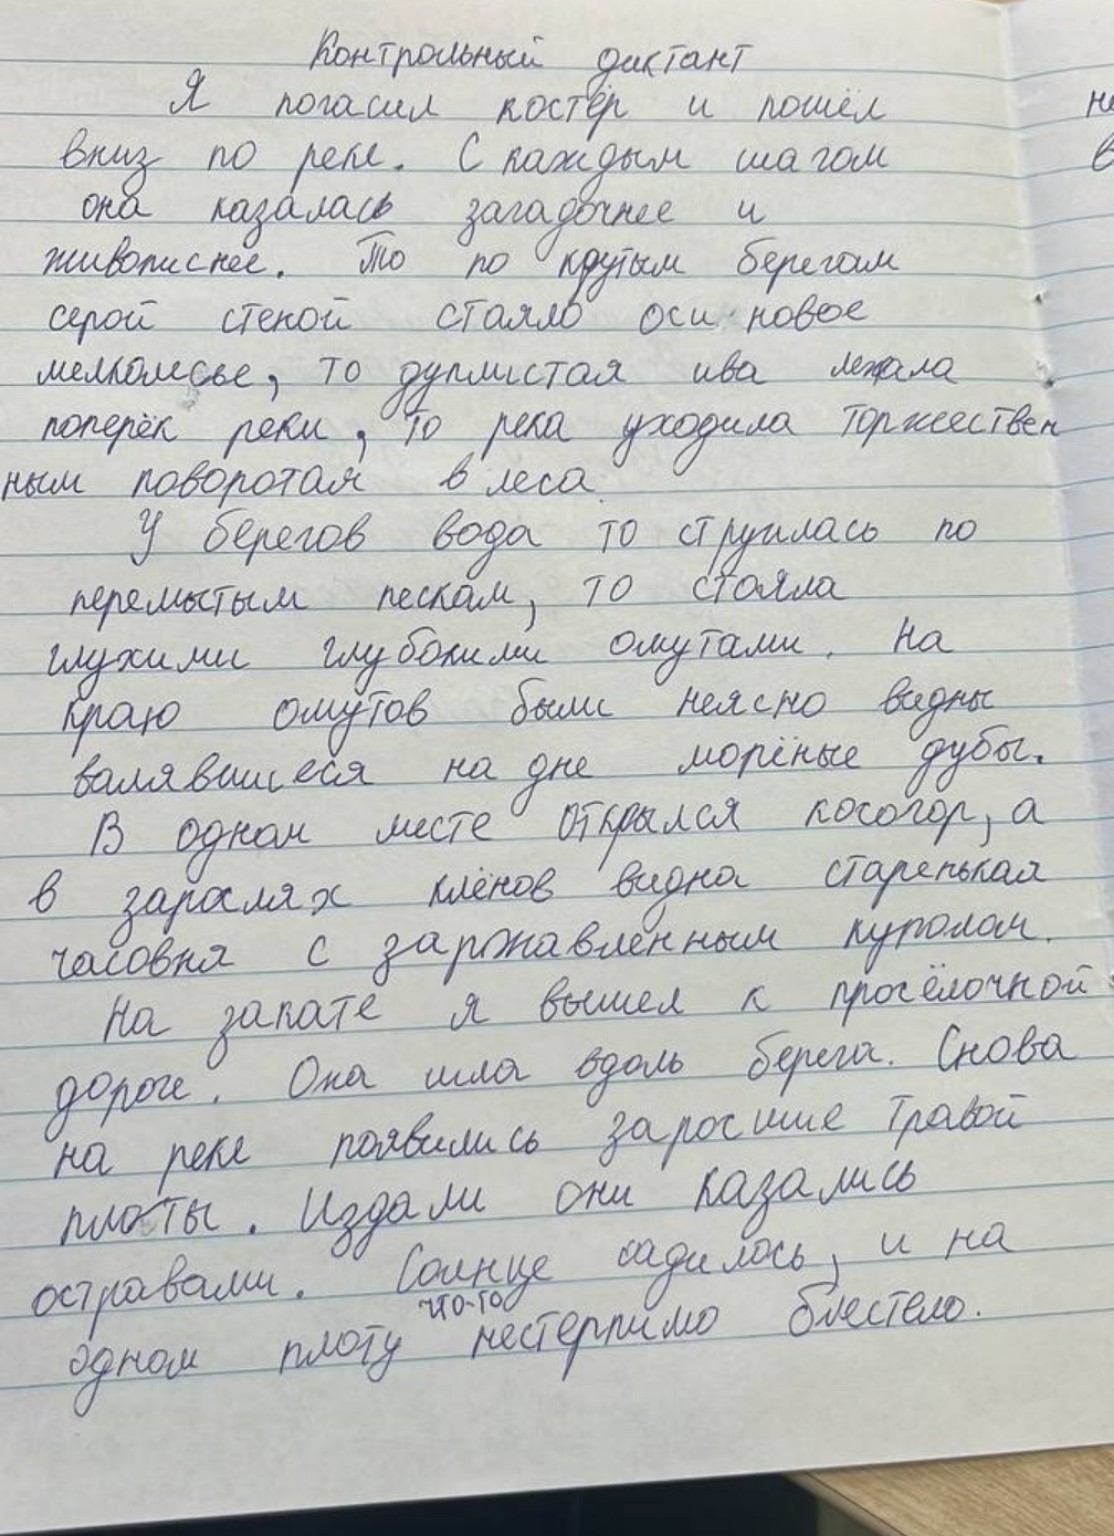 Контрольный диктант
Я погасил костёр и пошёл
вниз по реке. С каждым шагом
она казалась загадочнее и
живописнее. То по крутым берегам
серой стеной стояло оси новое
мелколесье, то дуплистая ива лежала
поперёк реки, то река уходила торжествен
ным поворотам в леса.
У берегов вода то струилась по
перемытым пескам, то стояла
глухими глубокими омутами. На
краю омутов были неясно видны
валявшиеся на дне морёные дубы.
В одном месте открылся косогор, а
в зарослях клёнов видна старенькая
часовня с заржавленным куполом.
На закате я вышел к просёлочной
дороге. Она шла вдоль берега. Снова
на реке появились заросшие травой
плоты. Издали они казались
остравами. Солнце садилось, и на
что-то
одном плоту нестерпимо блестело.